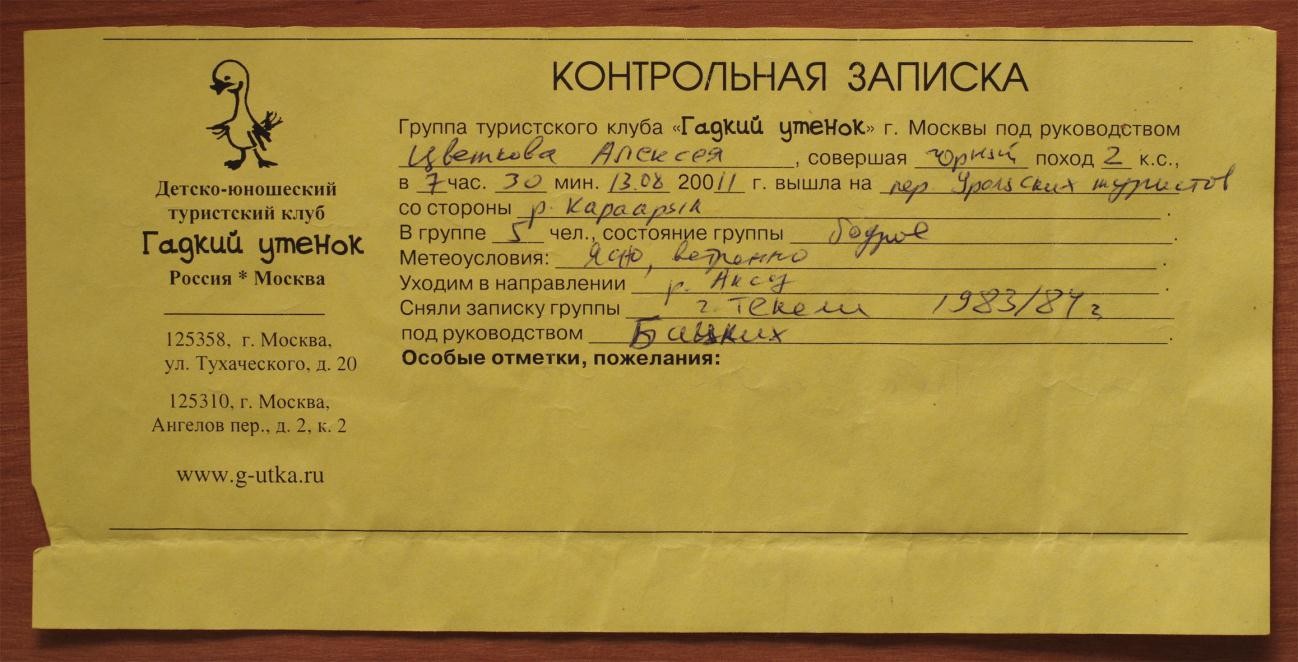 Детско-юношеский
туристский клуб
Гадкий утенок
Россия * Москва
125358, г. Москва,
ул. Тухаческого, д. 20
125310, г. Москва,
Ангелов пер., д. 2, к. 2
www.g-utka.ru
КОНТРОЛЬНАЯ ЗАПИСКА
Группа туристского клуба «Гадкий утенок» г. Москвы под руководством
Цветкова Алексея, совершая горный поход 2 к.с.,
в 7 час. 30 мин. 13.08 20011 г. вышла на пер. Уральских туристов
со стороны р. Караарык.
В группе 5 чел., состояние группы бодрое.
Метеоусловия: Ясно, ветренно.
Уходим в направлении р. Аксу.
Сняли записку группы г. Текели 1983/84 г.
под руководством Бицких.
Особые отметки, пожелания: